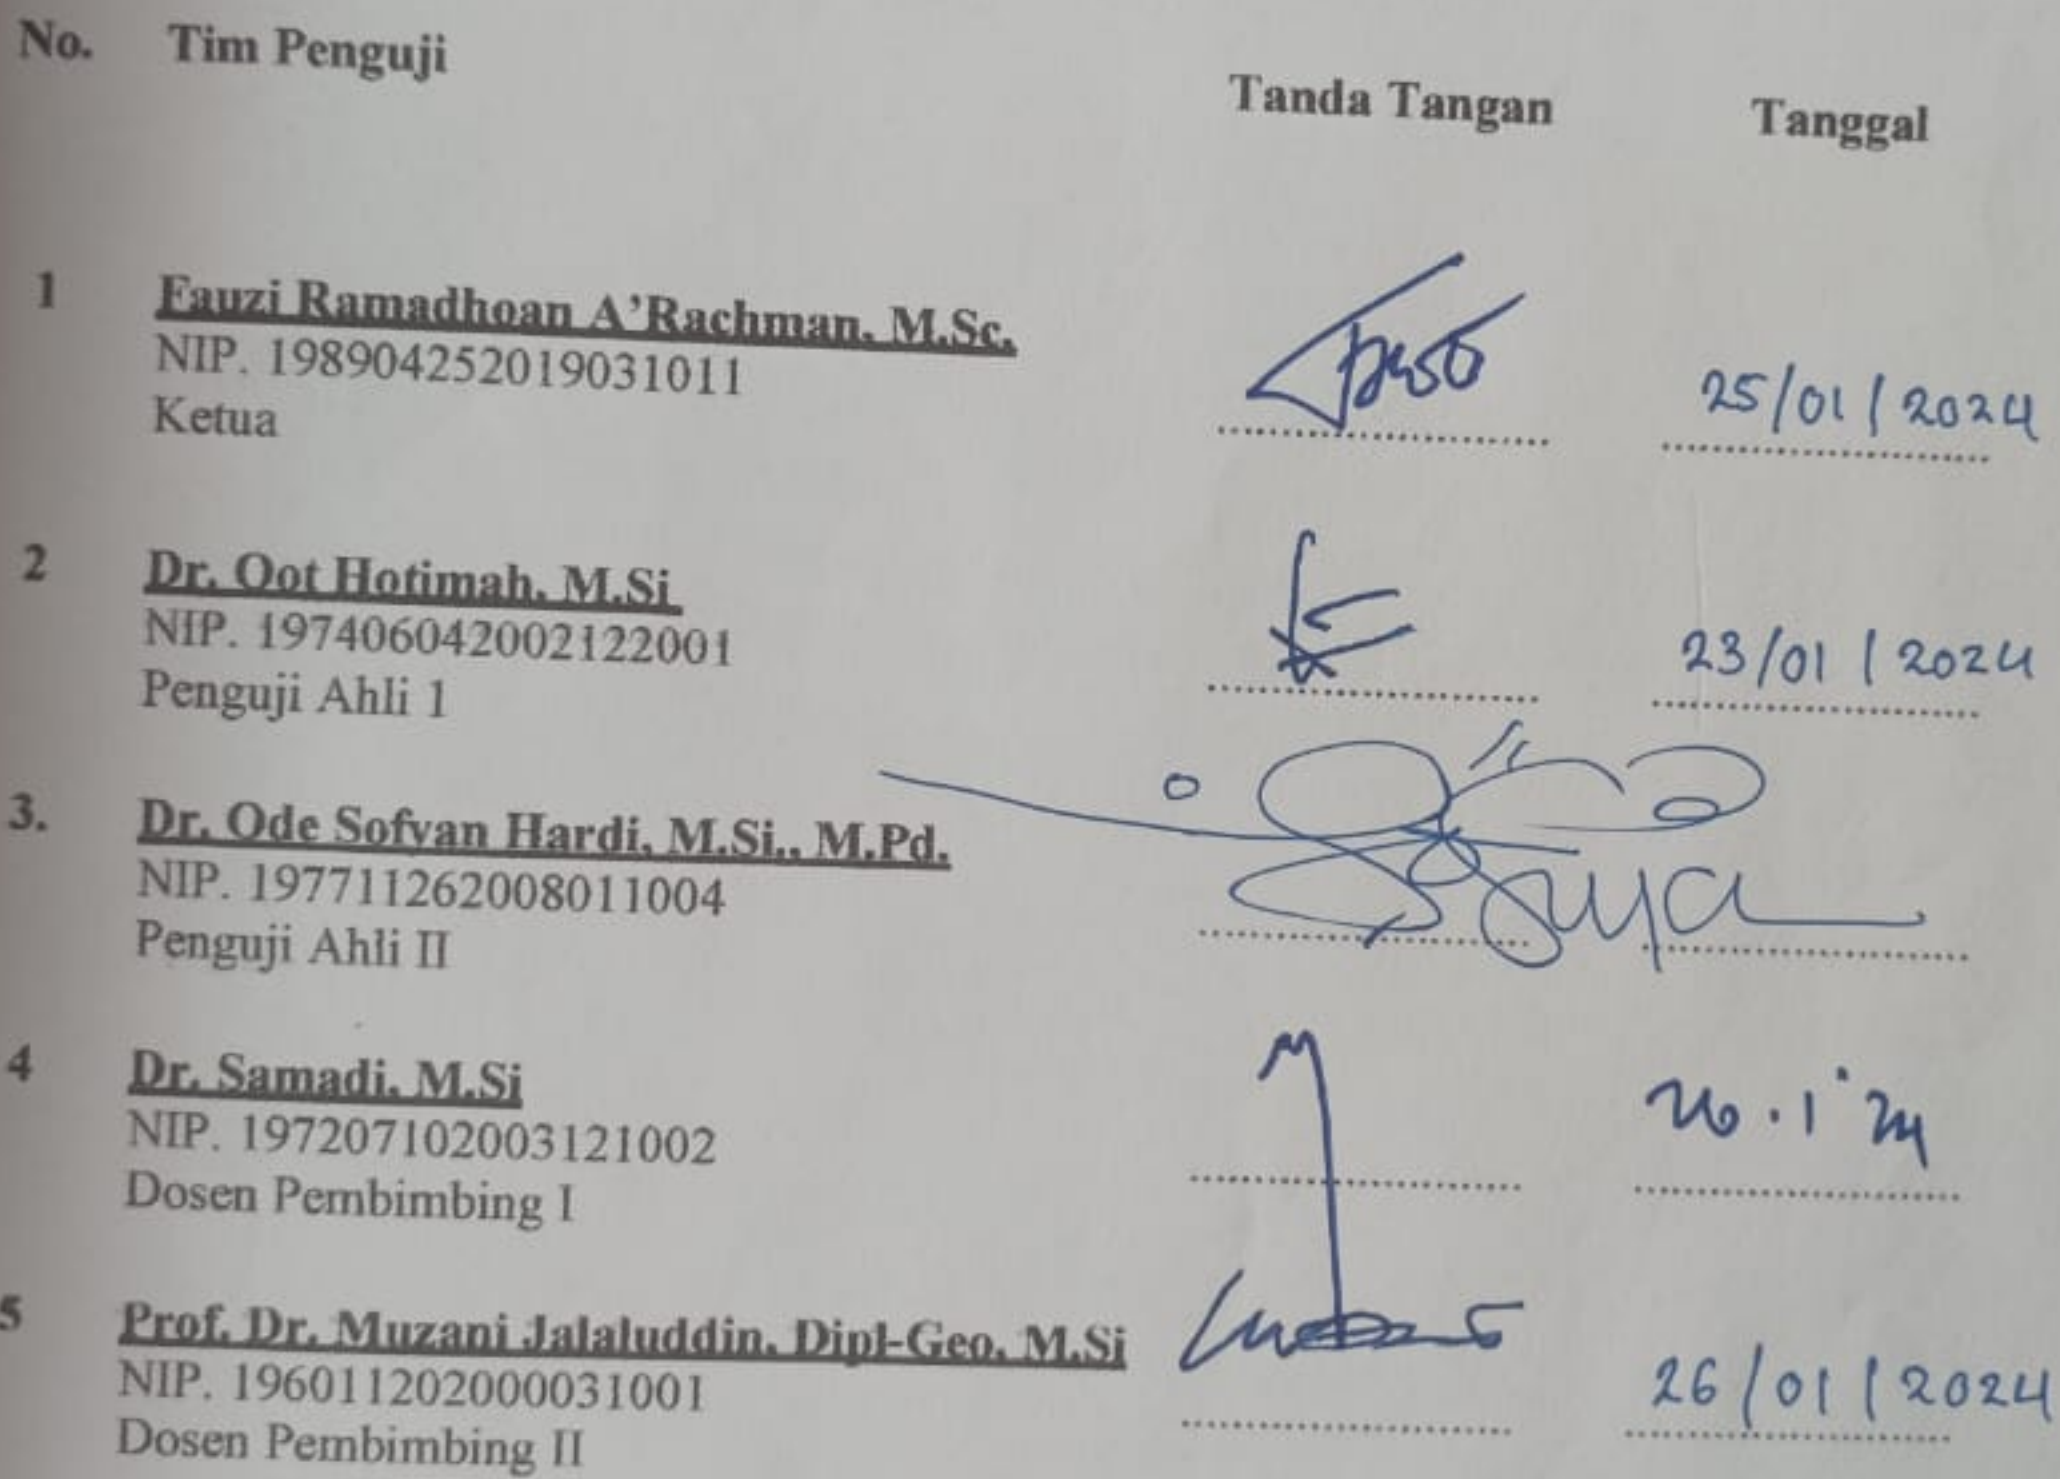 No. Tim Penguji Tanda Tangan Tanggal
1 Fauzi Ramadhoan A'Rachman, M.Sc.
NIP. 198904252019031011
Ketua 25/01/2024
2 Dr. Oot Hotimah, M.Si
NIP. 197406042002122001
Penguji Ahli 1 23/01/2024
3. Dr. Ode Sofyan Hardi, M.Si., M.Pd.
NIP. 197711262008011004
Penguji Ahli II
4 Dr. Samadi, M.Si
NIP. 197207102003121002
Dosen Pembimbing I
5 Prof. Dr. Muzani Jalaluddin, Dipl-Geo, M.Si
NIP. 196011202000031001
Dosen Pembimbing II 26/01/2024